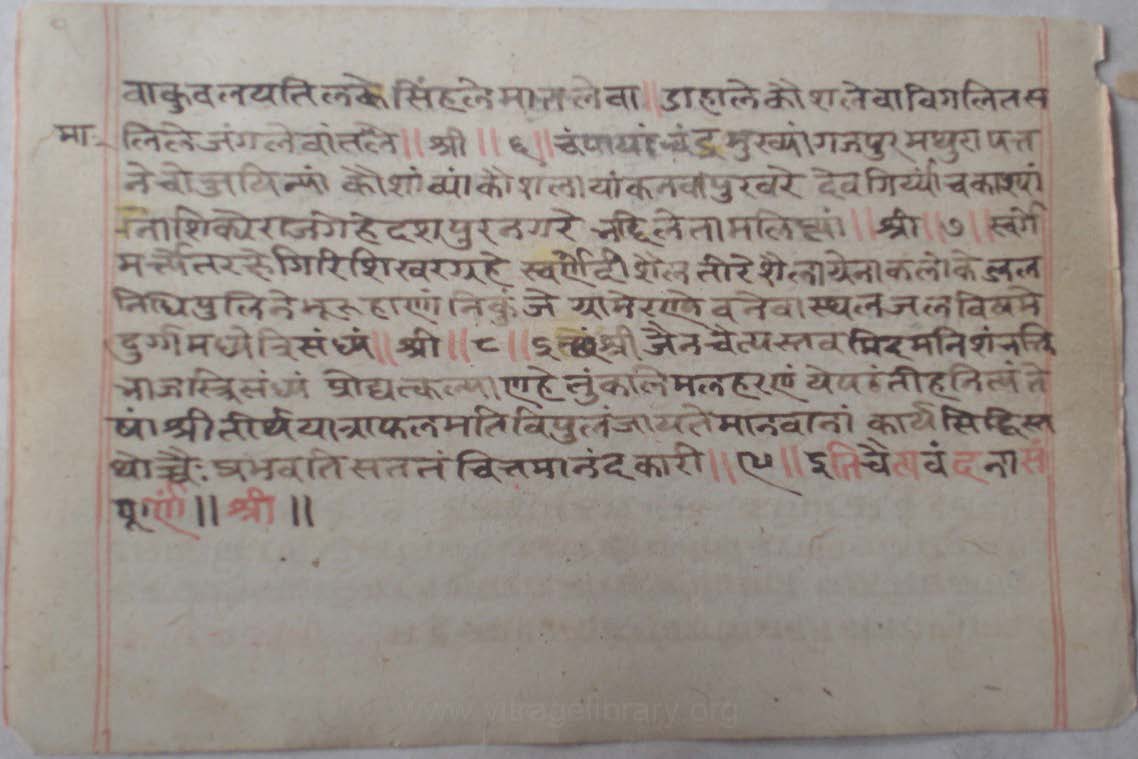 वाकुवलयतिलके सिंहले मालले वा॥ डाहाले कौशले वा विगलितस
मा: लिले जंगले वांतले॥ श्री॥ ६॥ चंपायां चंद्रमुख्यां गजपुर मथुरा पत्त
ने चोज्जयिन्यां कौशांव्यां कौशलायां कनकपुरवरे देवगिर्य्यां च काश्यां
नाशिक्ये राजगेहे दशपुरनगरे नद्दिले तामलिप्त्यां॥ श्री॥ ७॥ स्वर्गे
मर्त्त्येतरक्षे गिरिशिखरग्रहे स्वर्णदी शैल तीरे शैलाग्रे नाकलोके जल
निधिपुलिने भूरुहाणां निकुंजे ग्रामेरण्ये वनेवा स्थलजलविखमे
दुर्ग्गमध्ये त्रिसंध्यं॥ श्री॥ ८॥ इत्थं श्री जैनचैत्यस्तवमिदमनिशं भक्ति
भाजस्त्रिसंध्यं प्रोद्यत्कल्याणहेतुं कलिमलहरणं ये पठंतीह नित्यं ते
षां श्रीतीर्थयात्राफलमतिविपुलं जायते मानवानां कार्य सिद्धिस्त
थोच्चैः प्रभवति सततं चित्तमानंदकारी॥ ९॥ इति चैत्यवंदना सं
पूर्णं॥ श्री॥
www.vitragelibrary.org